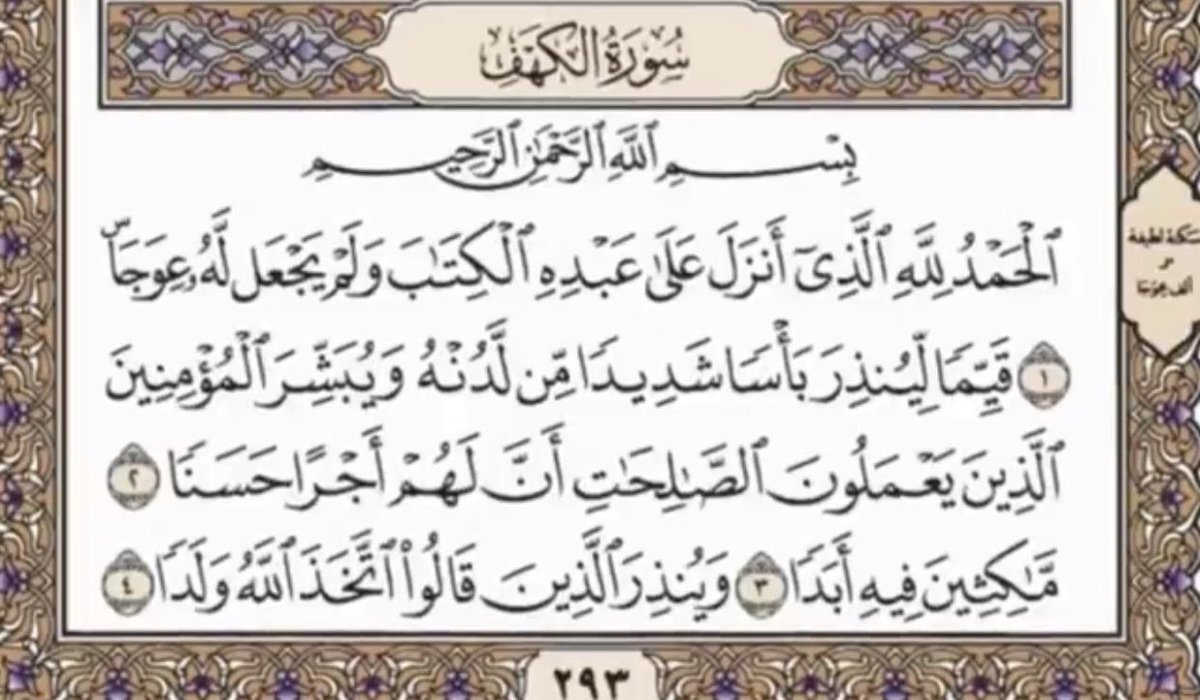 سُورَةُ الكَهۡفِ
بِسۡمِ ٱللَّهِ ٱلرَّحۡمَٰنِ ٱلرَّحِيمِ
ٱلۡحَمۡدُ لِلَّهِ ٱلَّذِيٓ أَنزَلَ عَلَىٰ عَبۡدِهِ ٱلۡكِتَٰبَ وَلَمۡ يَجۡعَل لَّهُۥ عِوَجَاۜ
١ قَيِّمٗا لِّيُنذِرَ بَأۡسٗا شَدِيدٗا مِّن لَّدُنۡهُ وَيُبَشِّرَ ٱلۡمُؤۡمِنِينَ
ٱلَّذِينَ يَعۡمَلُونَ ٱلصَّٰلِحَٰتِ أَنَّ لَهُمۡ أَجۡرًا حَسَنٗا ٢
مَّٰكِثِينَ فِيهِ أَبَدٗا ٣ وَيُنذِرَ ٱلَّذِينَ قَالُواْ ٱتَّخَذَ ٱللَّهُ وَلَدٗا ٤
سكتة لطيفة
ألف عوجا
٢٩٣